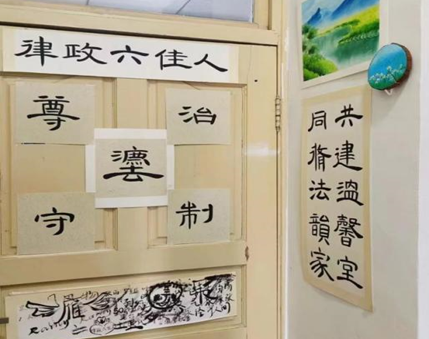 律政六佳人
尊 治
灋
守 制
共建溫馨室
同脩法韻家
雁